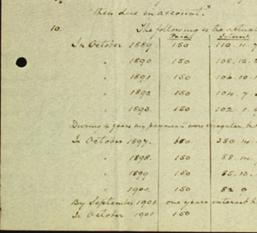 then due in account?
10. The following is the actual
Paid Interest
In October 1889 150 110. 11. 7
" 1890 150 108. 12.
" 1891 150 106. 10. 1
" 1892 150 104. 7.
" 1893 150 102. 1.
During 4 years my payments were irregular
In October 1897. 650 250. 14
" 1898. 150 88. 14.
" 1899 150 85. 13.
" 1900. 150 82 0
By September 1901 one years interest
In October 1901 150